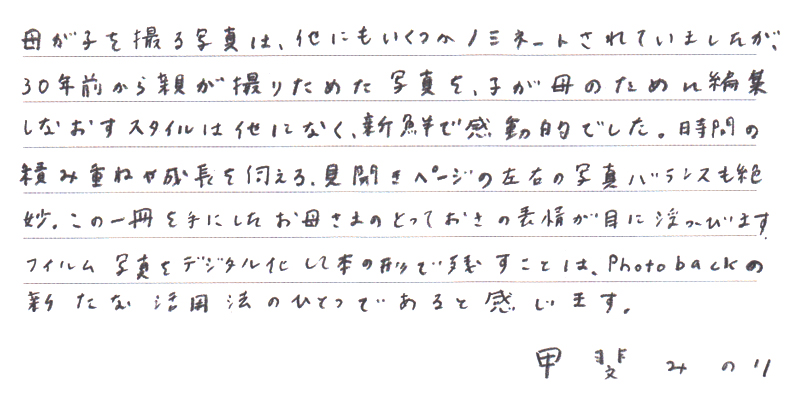 母が子を撮る写真は、他にもいくつかノミネートされていましたが、
30年前から親が撮りためた写真を、子が母のために編集
しなおすスタイルは他になく、新鮮で感動的でした。時間の
積み重ねや成長を伺える、見開きページの左右の写真バランスも絶
妙。この一冊を手にしたお母さまのとっておきの表情が目に浮かびます。
フィルム写真をデジタル化して本の形で残すことは、Photobackの
新たな活用法のひとつであると感じます。
甲斐みのり